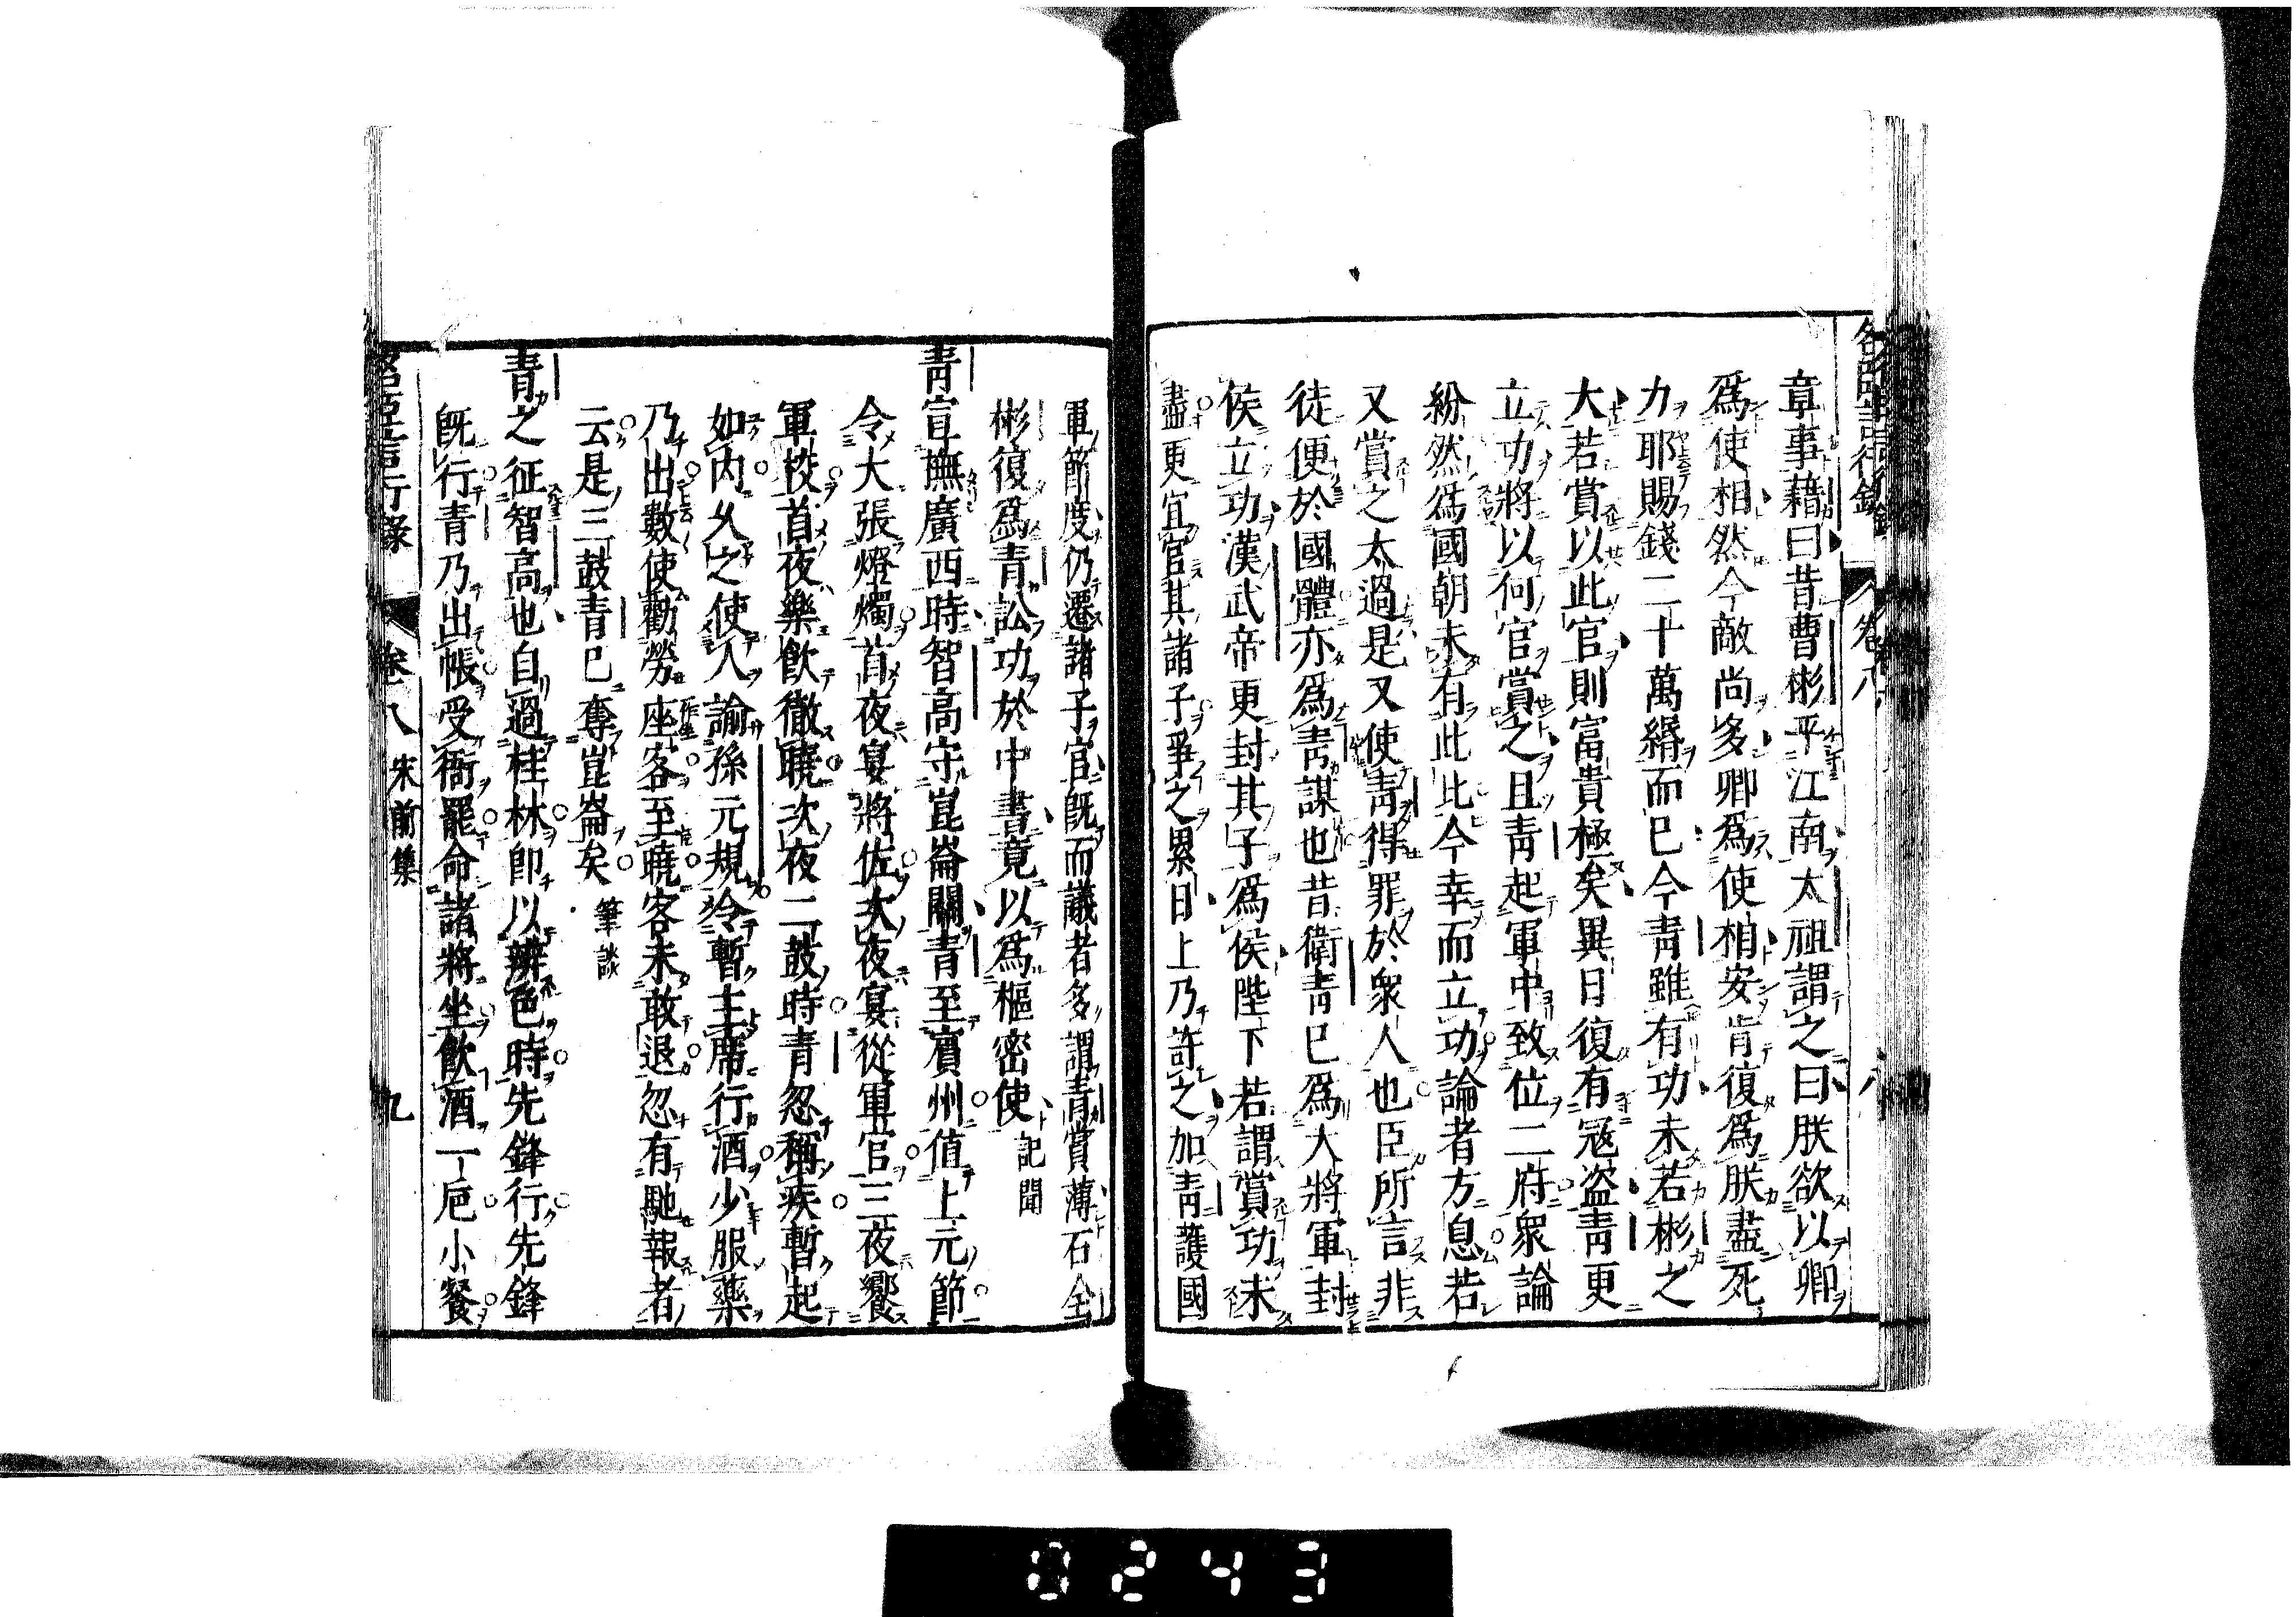 章事藉曰昔曹彬平江南太祖謂之曰朕欲以卿
爲使相然今敵尚多卿爲使相安肯復爲朕盡死
力耶賜錢二十萬緡而已今靑雖有功未若彬之
大若賞以此官則富貴極矣異日復有冦盗靑更
立功將以何官賞之且靑起軍中致位二府衆論
紛然爲國朝未有此比今幸而立功論者方息若
又賞之太過是又使靑得罪於衆人也臣所言非
徒便於國體亦爲靑謀也昔衛靑已爲大將軍封
侯立功漢武帝更封其子爲侯陛下若謂賞功未
盡更宜官其諸子爭之累日上乃許之加靑護國
軍節度仍遷諸子官旣而議者多謂靑賞薄石全
彬復爲靑訟功於中書竟以爲樞密使 記聞
靑宣撫廣西時智高守崑崙關靑至賓州値上元節
令大張燈燭首夜宴將佐次夜宴從軍官三夜饗
軍校首夜樂飮徹曉次夜二鼓時靑忽稱疾暫起
如内久之使人諭孫元規令暫主席行酒少服藥
乃出數使勸勞座客至曉客未敢退忽有馳報者
云是三鼓靑已奪崑崙矣 筆談
靑之征智高也自過桂林卽以辨色時先鋒行先鋒
旣行靑乃出帳受衙罷命諸將坐飮酒一巵小餐
卷八 宋前集 九